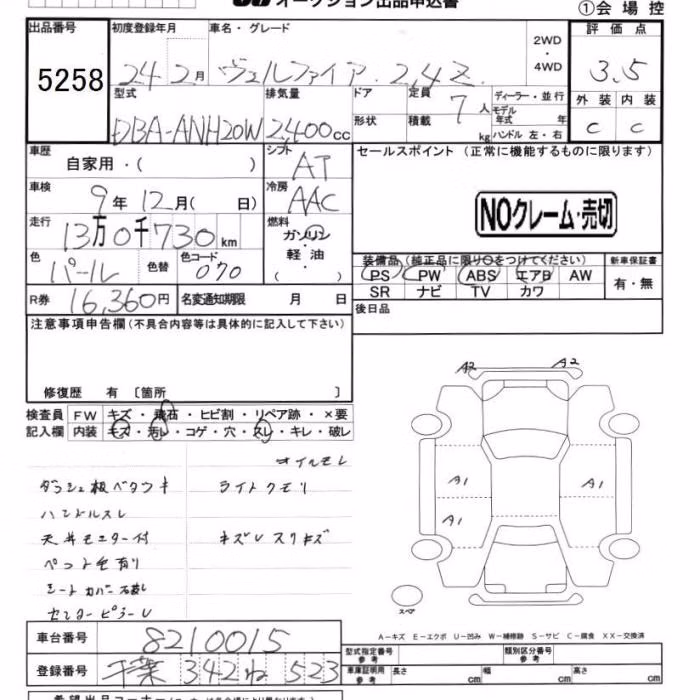 オークション出品申込書
①会場控
出品番号
5258
初度登録年月
24 2月
車名・グレード
ヴェルファイア 2.4Z
2WD
・
4WD
評価点
3.5
型式
DBA-ANH20W
排気量
2,400cc
ドア
形状
定員
7人
積載
kg
ディーラー・並行
モデル
年式 年
ハンドル 左・右
外装 内装
C C
車歴
自家用・( )
シフト
AT
セールスポイント (正常に機能するものに限ります)
車検
9年12月( 日)
冷房
AAC
NOクレーム・売切
走行
13万0千730km
燃料
ガソリン
軽油
( )
色
パール
色替
色コード
070
装備品 (純正品に限り○をつけてください)
新車保証書
PS PW ABS エアB AW
SR ナビ TV カワ
有・無
R券
16,360円
名変通知期限 月 日
後日品
注意事項申告欄(不具合内容等は具体的に記入して下さい)
修復歴 有 〔箇所 〕
検査員
記入欄
FW キズ・飛石・ヒビ割・リペア跡・×要
内装 キズ・汚レ・コゲ・穴・スレ・キレ・破レ
オイルモレ
ダッシュ板ベタツキ
ライトクモリ
ハンドルスレ
天井モニター付
キズレスリキズ
ペット毛有り
シートカバー
センターピラーレ
A2
A2
A1
A1
A1
スペア
A-キズ E-エクボ U-凹み W-補修跡 S-サビ C-腐食 XX-交換済
車台番号
8210015
登録番号
千葉 342 ね 523
型式指定番号
参考
類別区分番号
参考
車庫証明用
参考
長さ cm
幅 cm
高さ cm